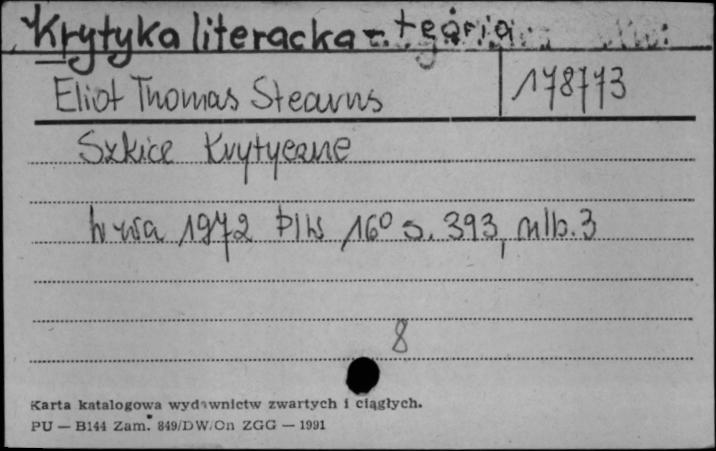 Krytyka literacka - teoria
Eliot Thomas Stearns 178773
Szkice Krytyczne
W-wa 1972 PIW 16° s. 393, nlb. 3
8
Karta katalogowa wydawnictw zwartych i ciągłych.
PU — B144 Zam. 849/DW/On ZGG — 1991